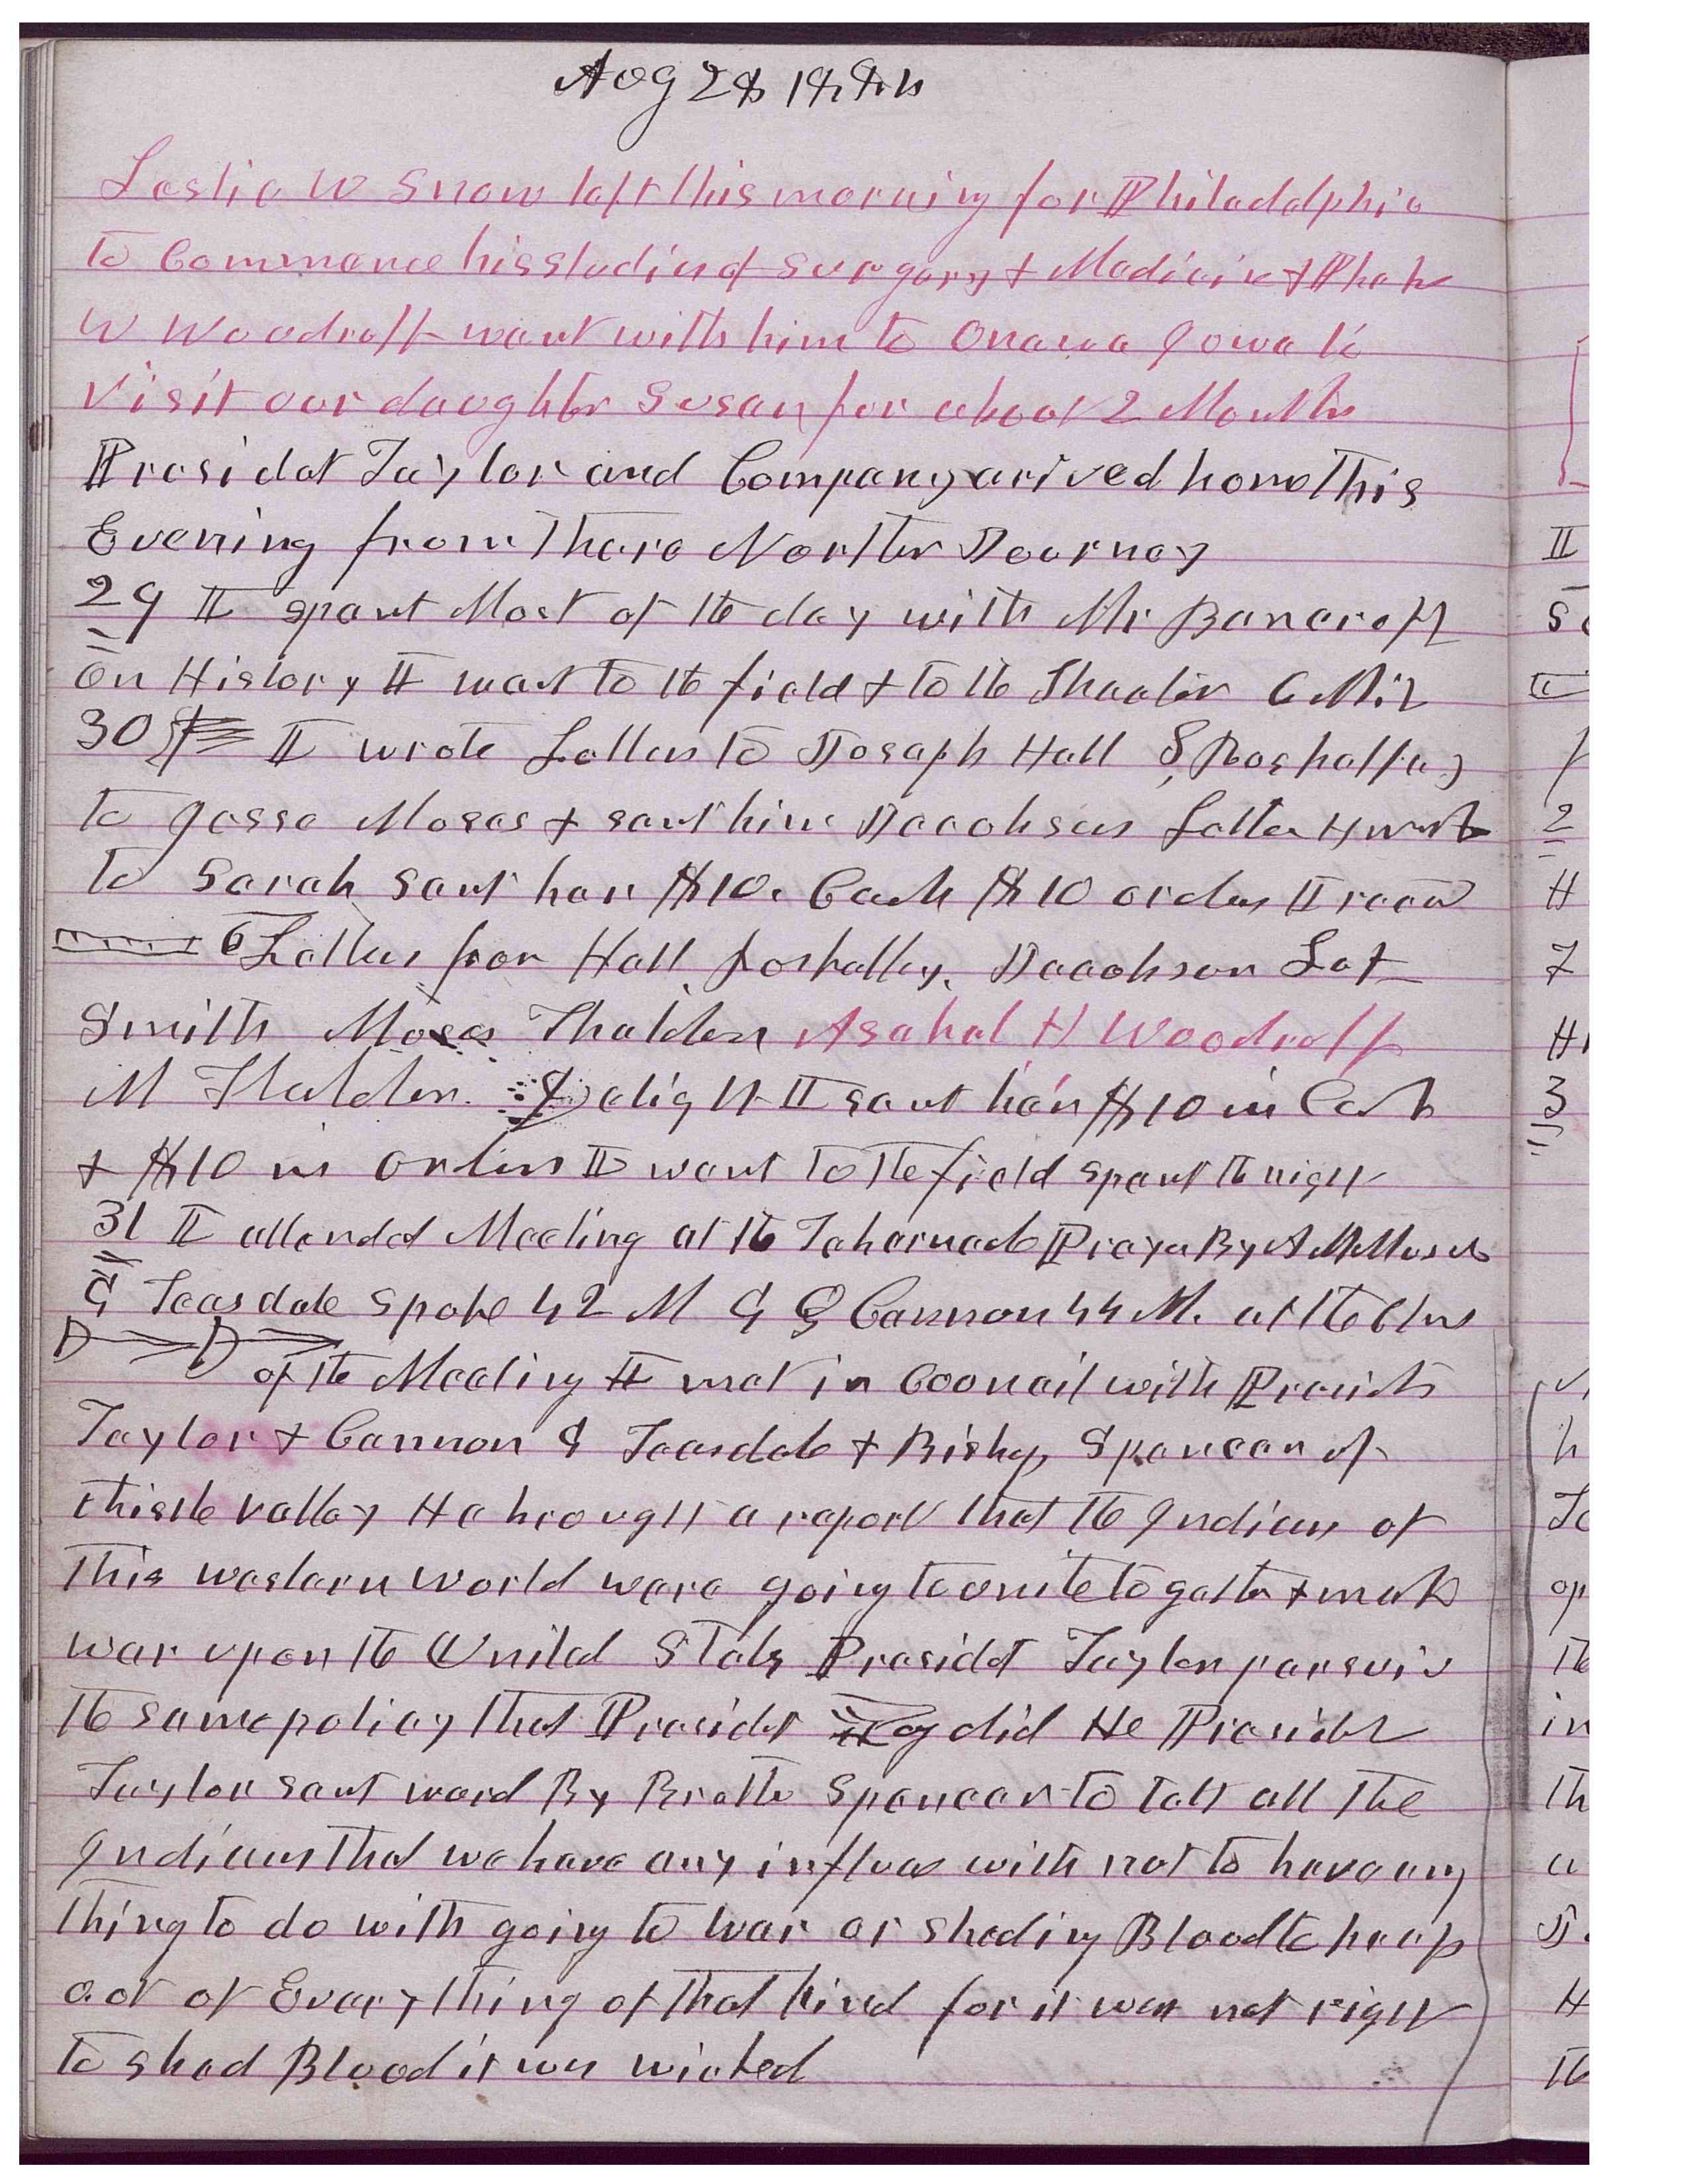 Aug 28 1884
Leslie W Snow left this morning for Philadelphia
to Commence his studies of Surgery & Medicin & Phebe
W Woodruff went with him to Onawa Iowa to
Visit our daughter Susan for about 2 Months
Presidet Taylor and Company arived home This
Evening from there Northern Journey
29 I spent Most of the day with Mr Bancroft
on History I went to the field & to the Theater 6 Mil
30 I wrote Letters to Joseph Hall
to Jesse Moses & sent him Jacobsons Letter I wrote
to Sarah sent her $10. Cash $10 order I recd
6 Letters from Hall Jacobson Lot
Smith Moses Thatcher Asahel H Woodruff
M Thatcher. Delight I sent her $10 in Cash
& $10 in orders I went to the field spent the night
31 I attended Meeting at the Tabernacle Prayer By A M Musser
G Teasdale spoke 42 M G Q Cannon 44 M. at the Close
of the Meeting I met in Council with Presidets
Taylor & Cannon G Teasdale & Bishop Spencer of
thistle valley He brought a report that the Indians of
This western world were going to unite together & make
war upon the United States Presidet Taylor persuis
the same policy that Presidet Young did He Presidet
Taylor sent word By Brother Spencer to tell all the
Indians that we have any influence with not to have any
thing to do with going to war or sheding Blood to keep
out of Every thing of that kind for it was not right
to shed Blood it was wicked